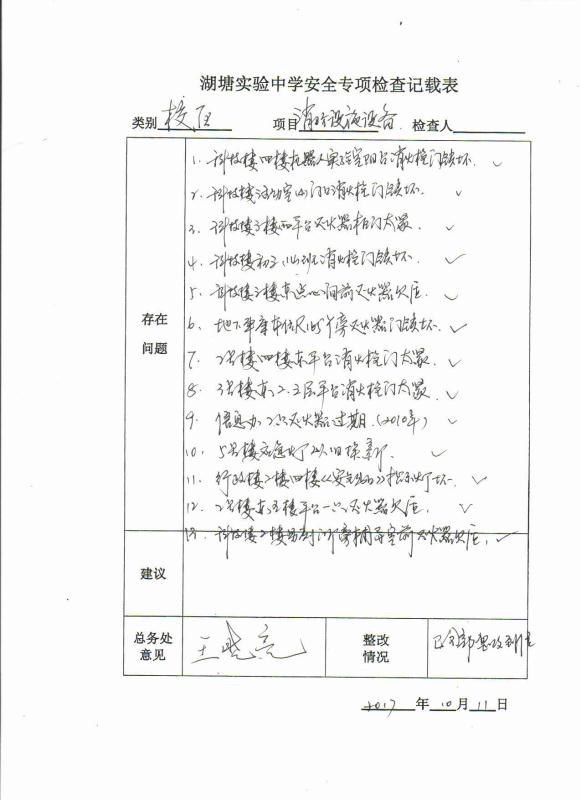 湖塘实验中学安全专项检查记载表
类别 校区 项目 消防设施设备 检查人
存在
问题
1. 科技楼四楼机器人实验室阳台消火栓门锁坏. ✓
2. 科技楼活动室(4)门口消火栓门锁坏. ✓
3. 科技楼3楼西平台灭火器柜门太紧. ✓
4. 科技楼初三(4)班消火栓门锁坏. ✓
5. 科技楼3楼东点心间前灭火器欠压. ✓
6. 地下车库车位旁灭火器门锁坏. ✓
7. 2号楼四楼东平台消火栓门太紧. ✓
8. 3号楼东2.3层平台消火栓门太紧. ✓
9. 信息办2只灭火器过期.(2010年) ✓
10. 5号楼应急灯以旧换新. ✓
11. 行政楼2楼四楼《安全出口》指示灯坏. ✓
12. 2号楼东三楼平台一只灭火器欠压. ✓
13. 科技楼2楼旁辅导室前灭火器欠压. ✓
建议
总务处
意见
王晓亮
整改
情况
已全部整改到位
2017 年 10 月 11 日